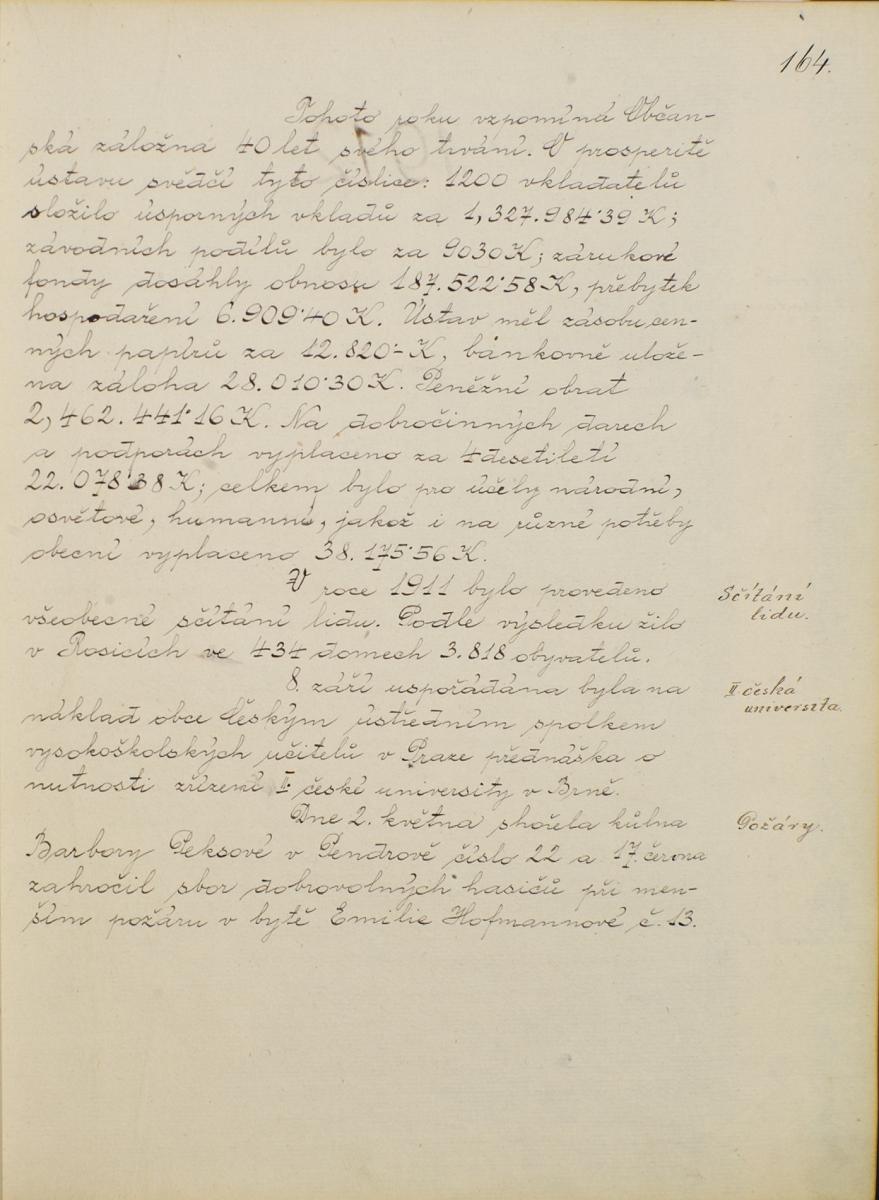 164.
Tohoto roku vzpomíná Občan-
ská záložna 40 let svého trvání. O prosperitě
ústavu svědčí tyto číslice: 1200 vkladatelů
složilo úsporných vkladů za 1,327.984·39 K;
závodních podílů bylo za 9030 K; zárukové
fondy dosáhly obnosu 187.522·58 K, přebytek
hospodaření 6.909·40 K. Ústav měl zásobu cen-
ných papírů za 12.820·- K, bánkovně ulože-
na záloha 28.010·30 K. Peněžní obrat
2,462.441·16 K. Na dobročinných darech
a podporách vyplaceno za 4 desetiletí
22.078·38 K; celkem bylo pro účely národní,
osvětové, humanní, jakož i na různé potřeby
obecní vyplaceno 38.175·56 K.
V roce 1911 bylo provedeno
Sčítání
lidu.
všeobecné sčítání lidu. Podle výsledku žilo
v Rosicích ve 434 domech 3.818 obyvatelů.
8. září uspořádána byla na
II. česká
universita.
náklad obce Českým ústředním spolkem
vysokoškolských učitelů v Praze přednáška o
nutnosti zřízení II. české university v Brně.
Dne 2. května shořela kůlna
Požáry.
Barbory Peksové v Pendrově číslo 22 a 17. června
zahročil sbor dobrovolných hasičů při men-
ším požáru v bytě Emilie Hofmannové č. 13.